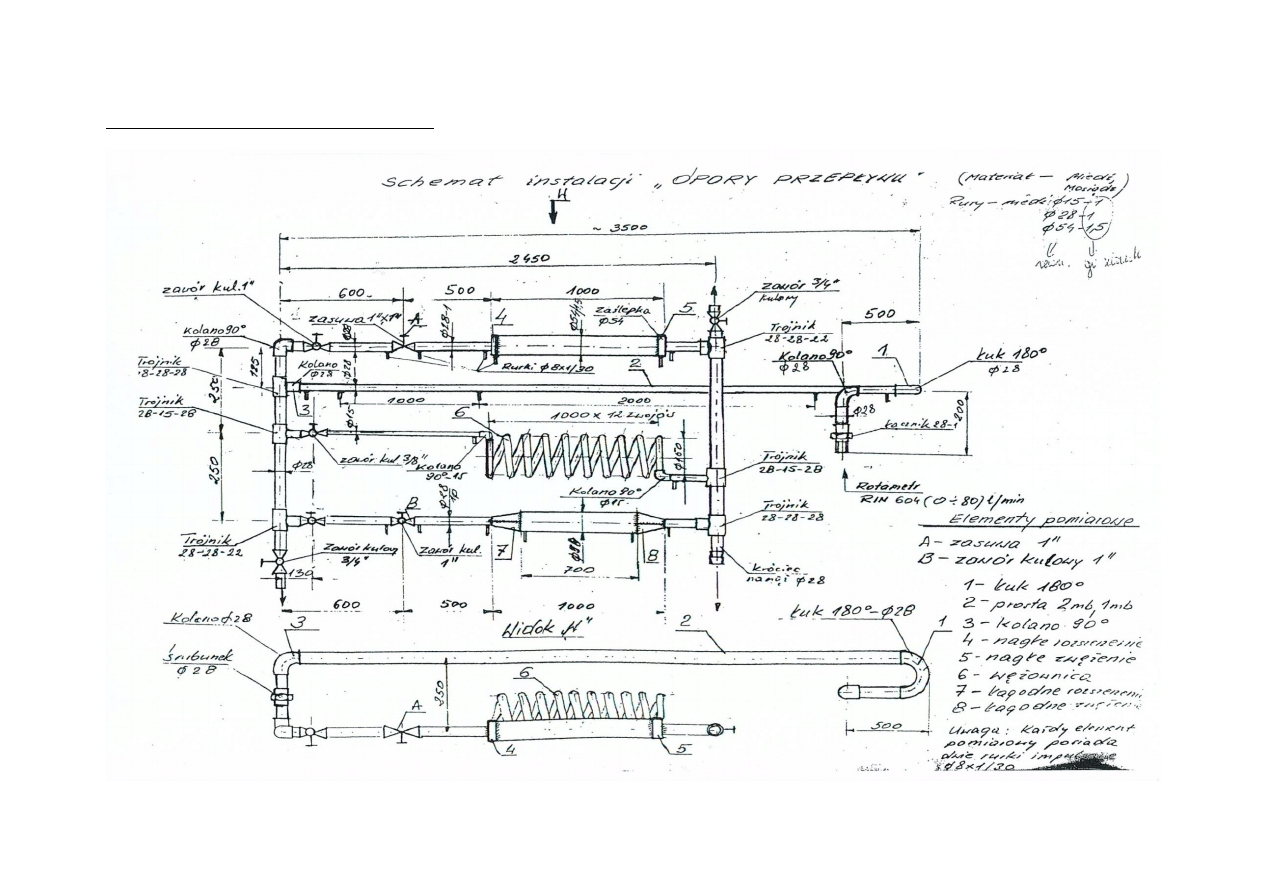 Schemat instalacji „OPORY PRZEPŁYWU"
(Materiał — Miedź,
Mosiądz)
Rury — miedź φ15-1
φ28-1
φ54-1,5
H
~ 3500
2450
zawór kul.1"
600
500
1000
zawór 3/4"
kulowy
500
zasuwa 1"x1"
A
φ28
φ28-1
4
φ54x1,5
zaślepka
φ54
5
Kolano90°
φ28
Trójnik
28-28-22
Kolano90°
φ28
1
Łuk 180°
φ28
Trójnik
28-28-28
125
Kolano
φ28
φ28
Rurki φ8x1/30
2
250
3
1000
2000
Trójnik
28-15-28
φ15
6
1000 x 12 zwojów
φ28
200
Łącznik 28-1
zawór kul 3/8"
Kolano
90°-15
φ160
Trójnik
28-15-28
φ28
250
Kolano 90°
φ15
Rotametr
RIN 604 (0÷80) l/min
B
φ28
Trójnik
28-28-28
Elementy pomiarowe
Trójnik
28-28-22
Zawór kulowy
3/4"
Zawór kul.
1"
7
8
700
Króciec
φ28
130
A - zasuwa 1"
B - zawór kulowy 1"
600
500
1000
1 - Łuk 180°
2 - prosta 2mb, 1mb
3 - kolano 90°
4 - nagłe rozszerzenie
5 - nagłe zwężenie
6 - wężownica
7 - łagodne rozszerzenie
8 - łagodne zwężenie
Kolano φ28
3
Widok „H"
2
Łuk 180°-φ28
1
Śrubunek
φ28
350
6
A
500
4
5
Uwaga: Każdy element
pomiarowy posiada
dwie rurki impulsowe
φ8x1/30